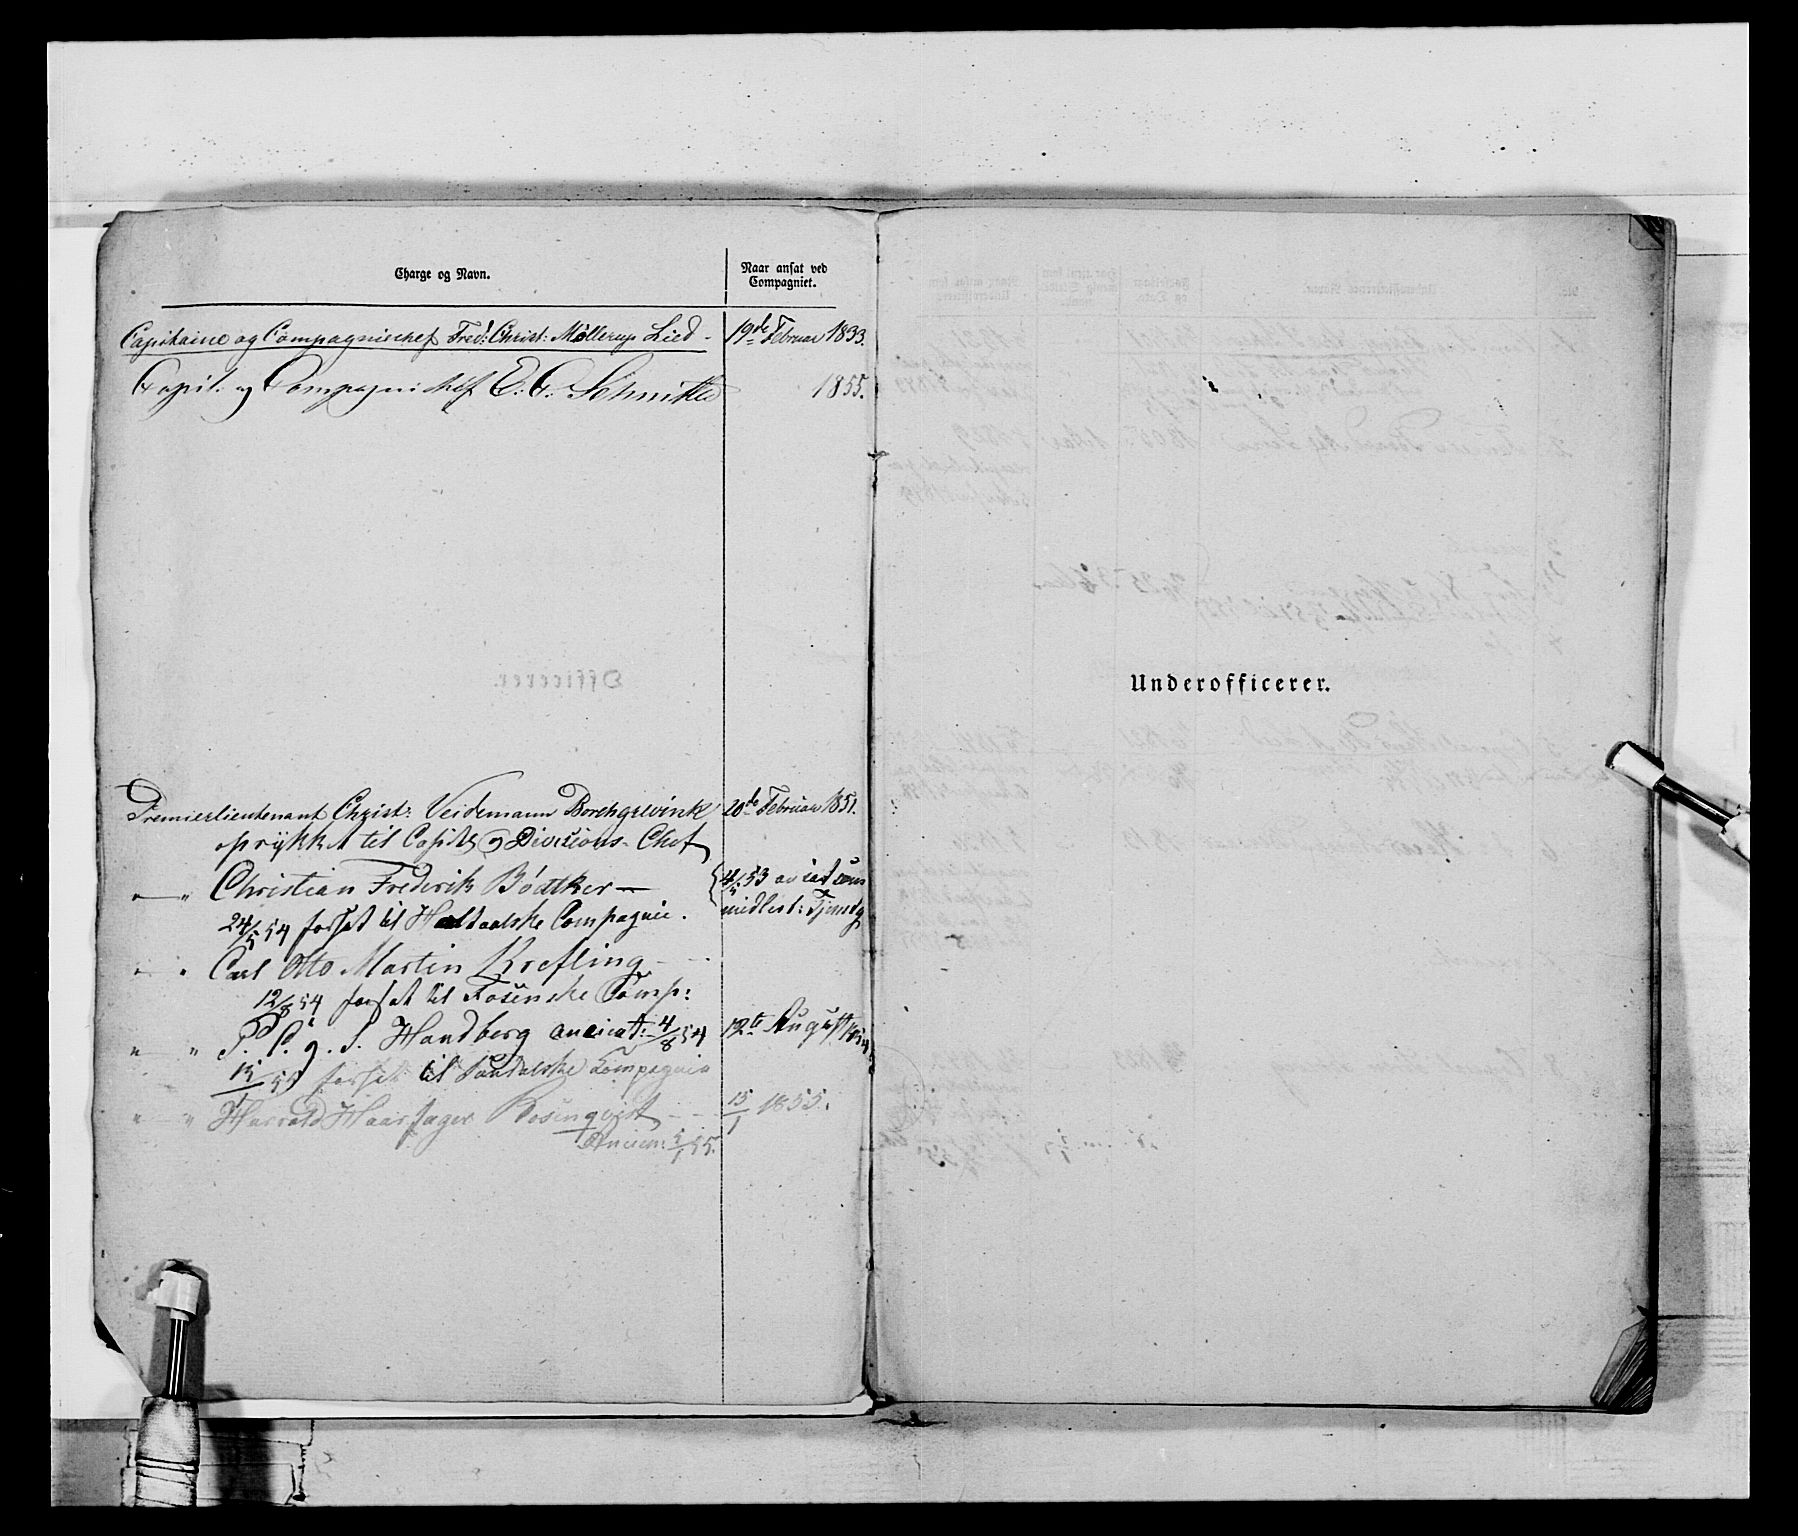 Charge og Navn.
Naar ansat ved
Compagniet.
Capitaine og Compagniechef Fred: Christ: Möllerup Lied - 19de Februar 1833.
Capit. og Compagnichef E. G. Schnitler 1855.
Premierlieutenant Christ: Veidemann Borchgrevink 20de Februar 1851.
oprykket til Capit: og Divisions-Chef
— " Christian Frederik Bödtker — 4/5 53 ansat som
24/5 54 forsat til Haltdalske Compagnie. midlert: Tjenstg
" " Carl Otto Martin Krefting -
12/8 54 forsat til Fosenske Comp:
" " P. C. g. S. Handberg ancient: 4/8 54 12te August 1854
15/1 55 forsat til Sundalske Compagnie
" " Harrald Haarfager Rosenqvist - - 15/1 1855.
Ancien: 5/1 55.
Underofficerer.